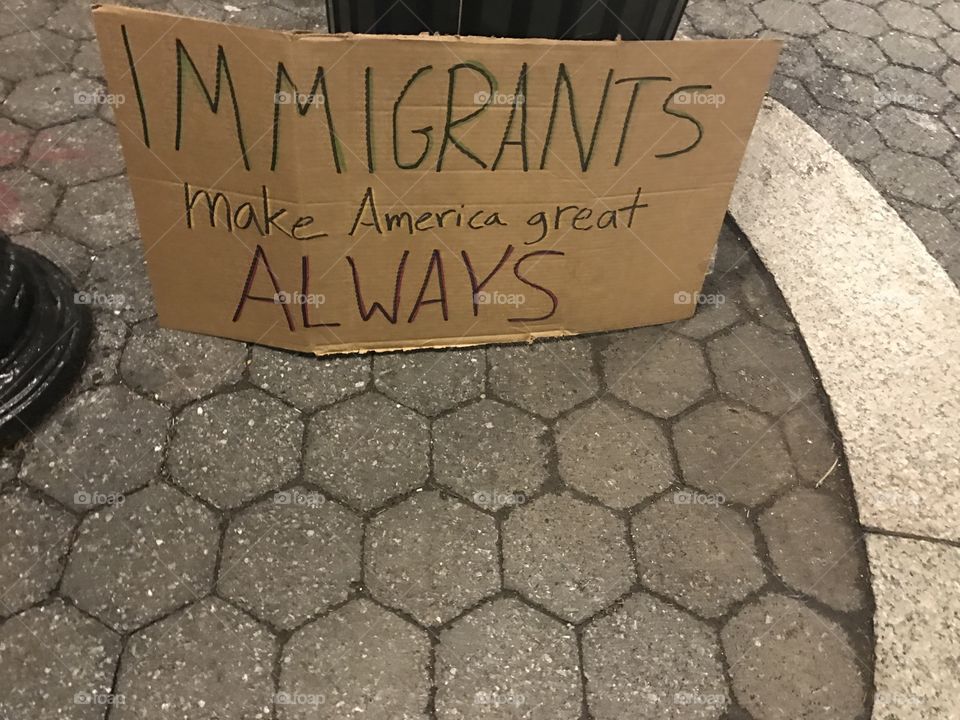 IMMIGRANTS
make America great
ALWAYS